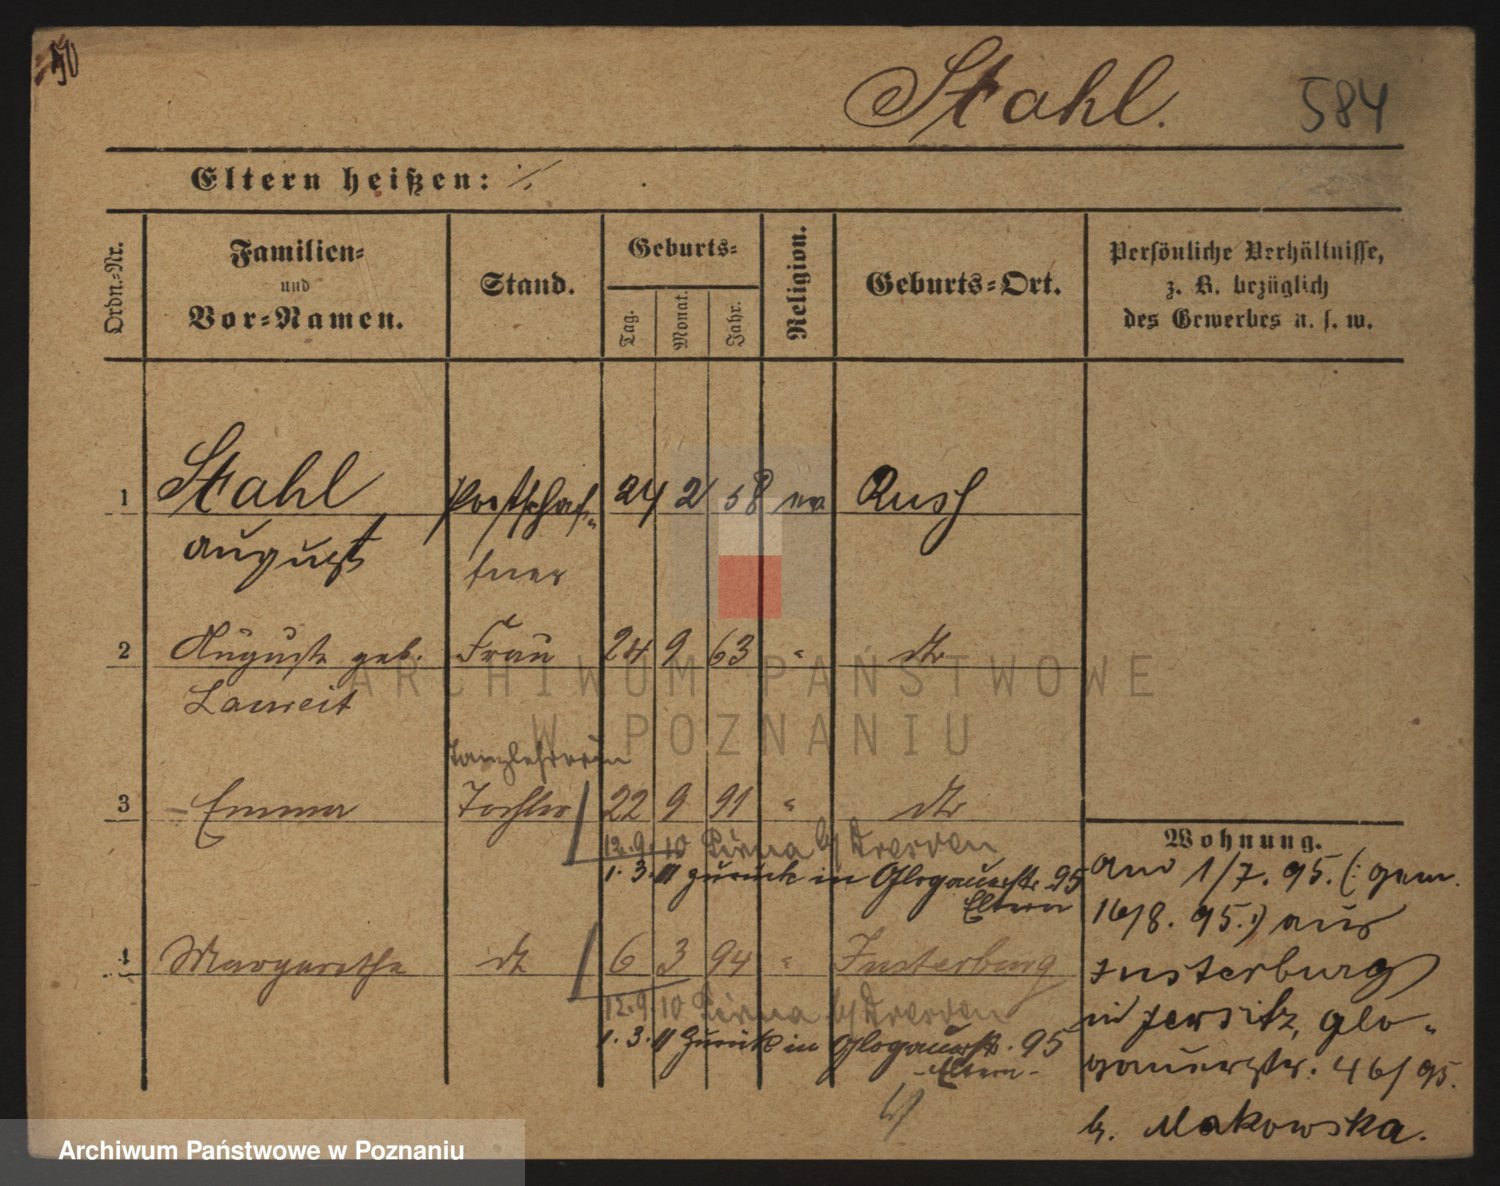 Stahl. 584
Eltern heißen: ·/.
Ordn.-Nr.
Familien-
und
Vor-Namen.
Stand.
Geburts-
Tag.
Monat.
Jahr.
Religion.
Geburts-Ort.
Persönliche Verhältnisse,
z. B. bezüglich
des Gewerbes u. s. w.
1 Stahl Postschaf- 24 2 58 ev Russ
August fner
2 Auguste geb. Frau 24 9 63 " dto
Laureit
Tanzlehrerin
3 Emma Tochter 22 9 91 " dto
12.9.10 Pirna b/ Dresden
1.3.11 zurück in Glogauerstr. 95
Eltern
4 Margarethe dto 6 3 94 " Insterburg
12.9.10 Pirna b/ Dresden
1.3.11 Zurück in Glogauerstr. 95
-Eltern-
Wohnung.
1/7. 95. (: gem.
16/8. 95.:) aus
Insterburg
in Jersitz, Glo-
gauerstr. 46/95.
b. Makowska.
ARCHIWUM PAŃSTWOWE
W POZNANIU
Archiwum Państwowe w Poznaniu